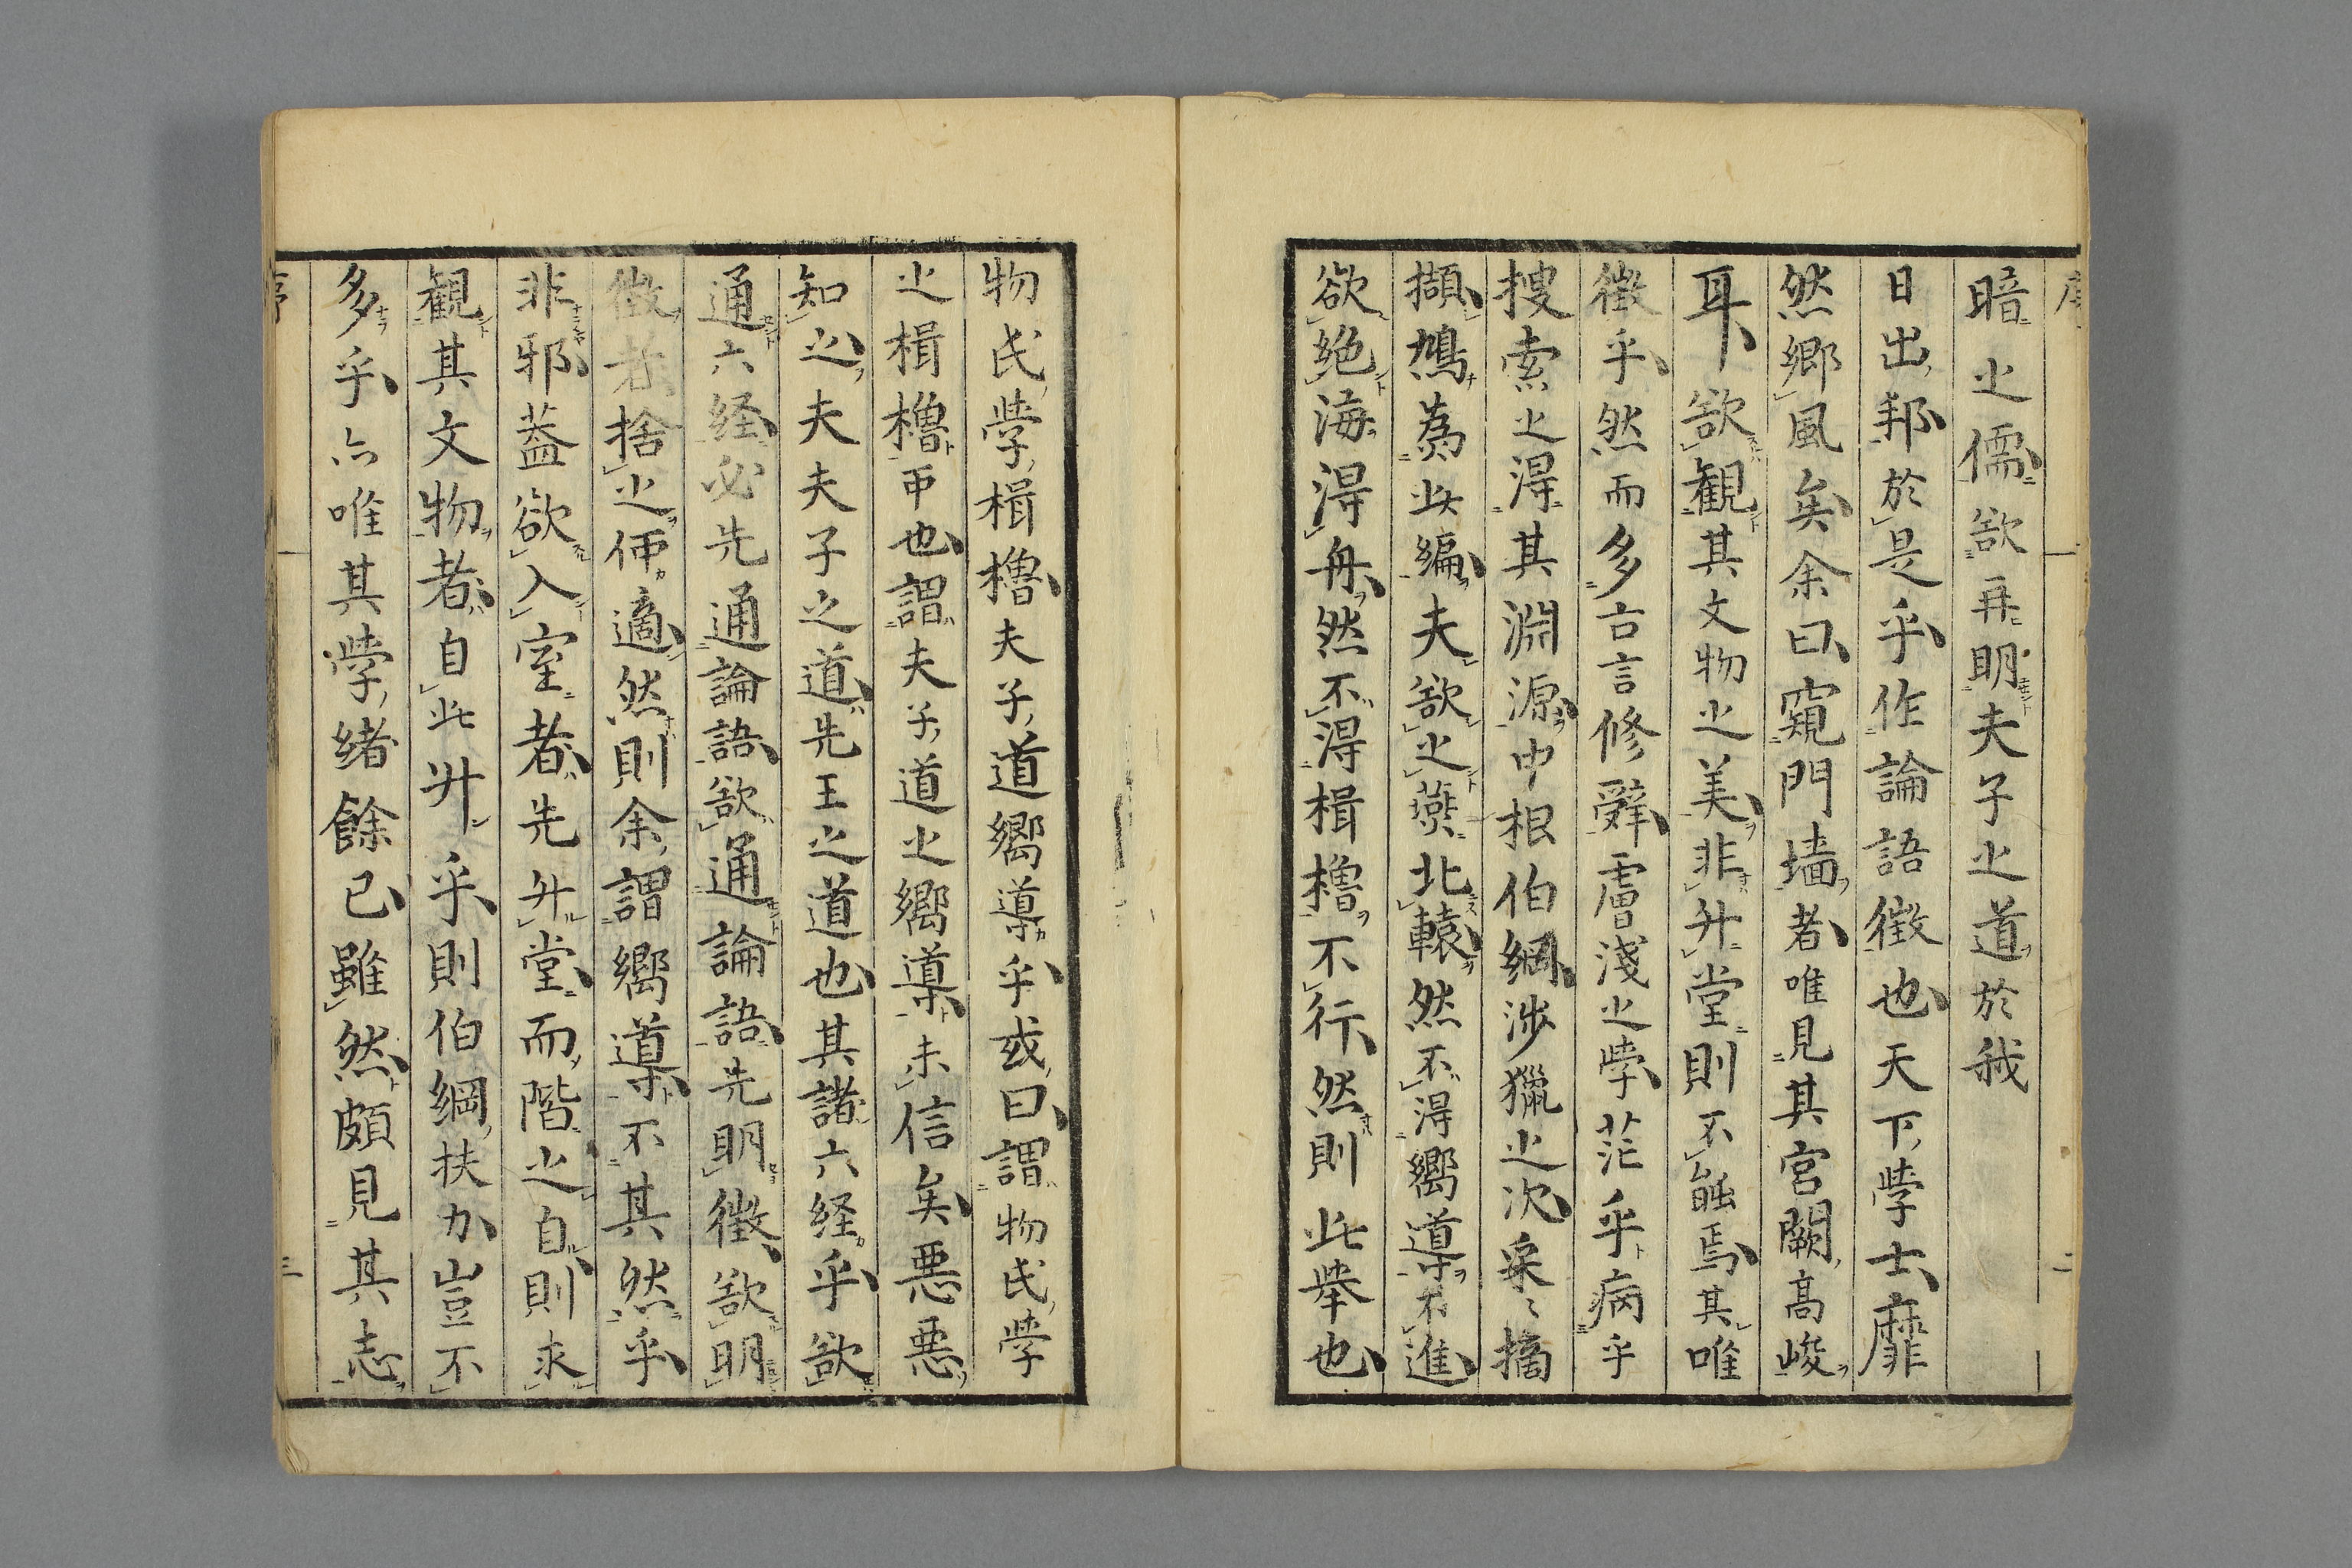 暗之儒欲再明夫子之道於我
日出邦於是乎作論語徴也天下學士靡
然郷風矣余曰窺門墻者唯見其宮闕高峻
耳欲観其文物之美非升堂則不能焉其唯
徴乎然而多古言修辭膚淺之學茫乎病乎
捜索之得其淵源中根伯綱渉獵之次采〻摘
擷鳩為此編夫欲之燕北轅然不得嚮導不進
欲絶海得舟然不得楫櫓不行然則此舉也
物氏學楫櫓夫子道嚮導乎或曰謂物氏學
之楫櫓而也謂夫子道之嚮導未信矣悪悪
知之夫夫子之道先王之道也其諸六経乎欲
通六経必先通論語欲通論語先明徴欲明
徴者捨之何適然則余謂嚮導不其然乎
非邪葢欲入室者先升堂而階之自則求
観其文物者自此升乎則伯綱扶力豈不
多乎亦唯其學緒餘已雖然頗見其志
二
序
三